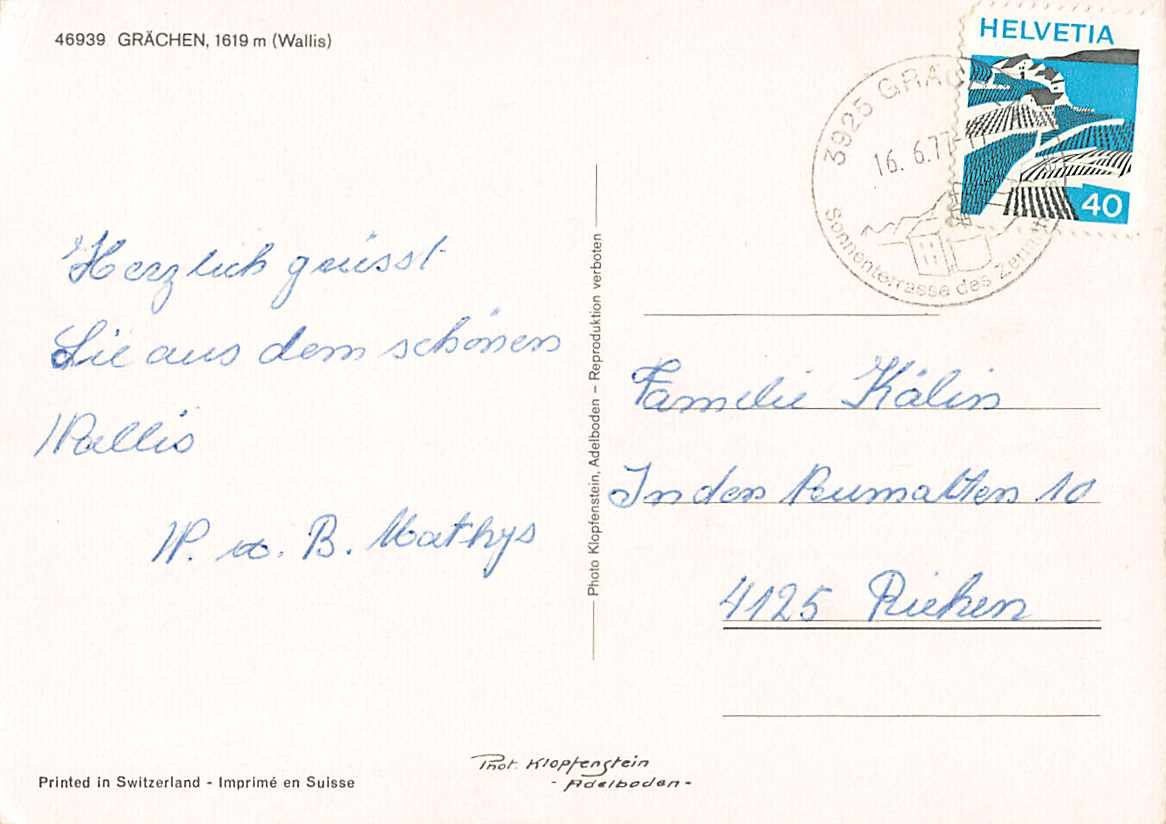 46939 GRÄCHEN, 1619 m (Wallis)
HELVETIA
40
3925 GRÄC
16. 6.77-11
Sonnenterrasse des Zerma
Herzlich grüsst
Sie aus dem schönen
Wallis
W. u. B. Mathys
Photo Klopfenstein, Adelboden – Reproduktion verboten
Familie Kälin
In den Neumatten 10
4125 Riehen
Printed in Switzerland - Imprimé en Suisse
Phot. Klopfenstein
- Adelboden -